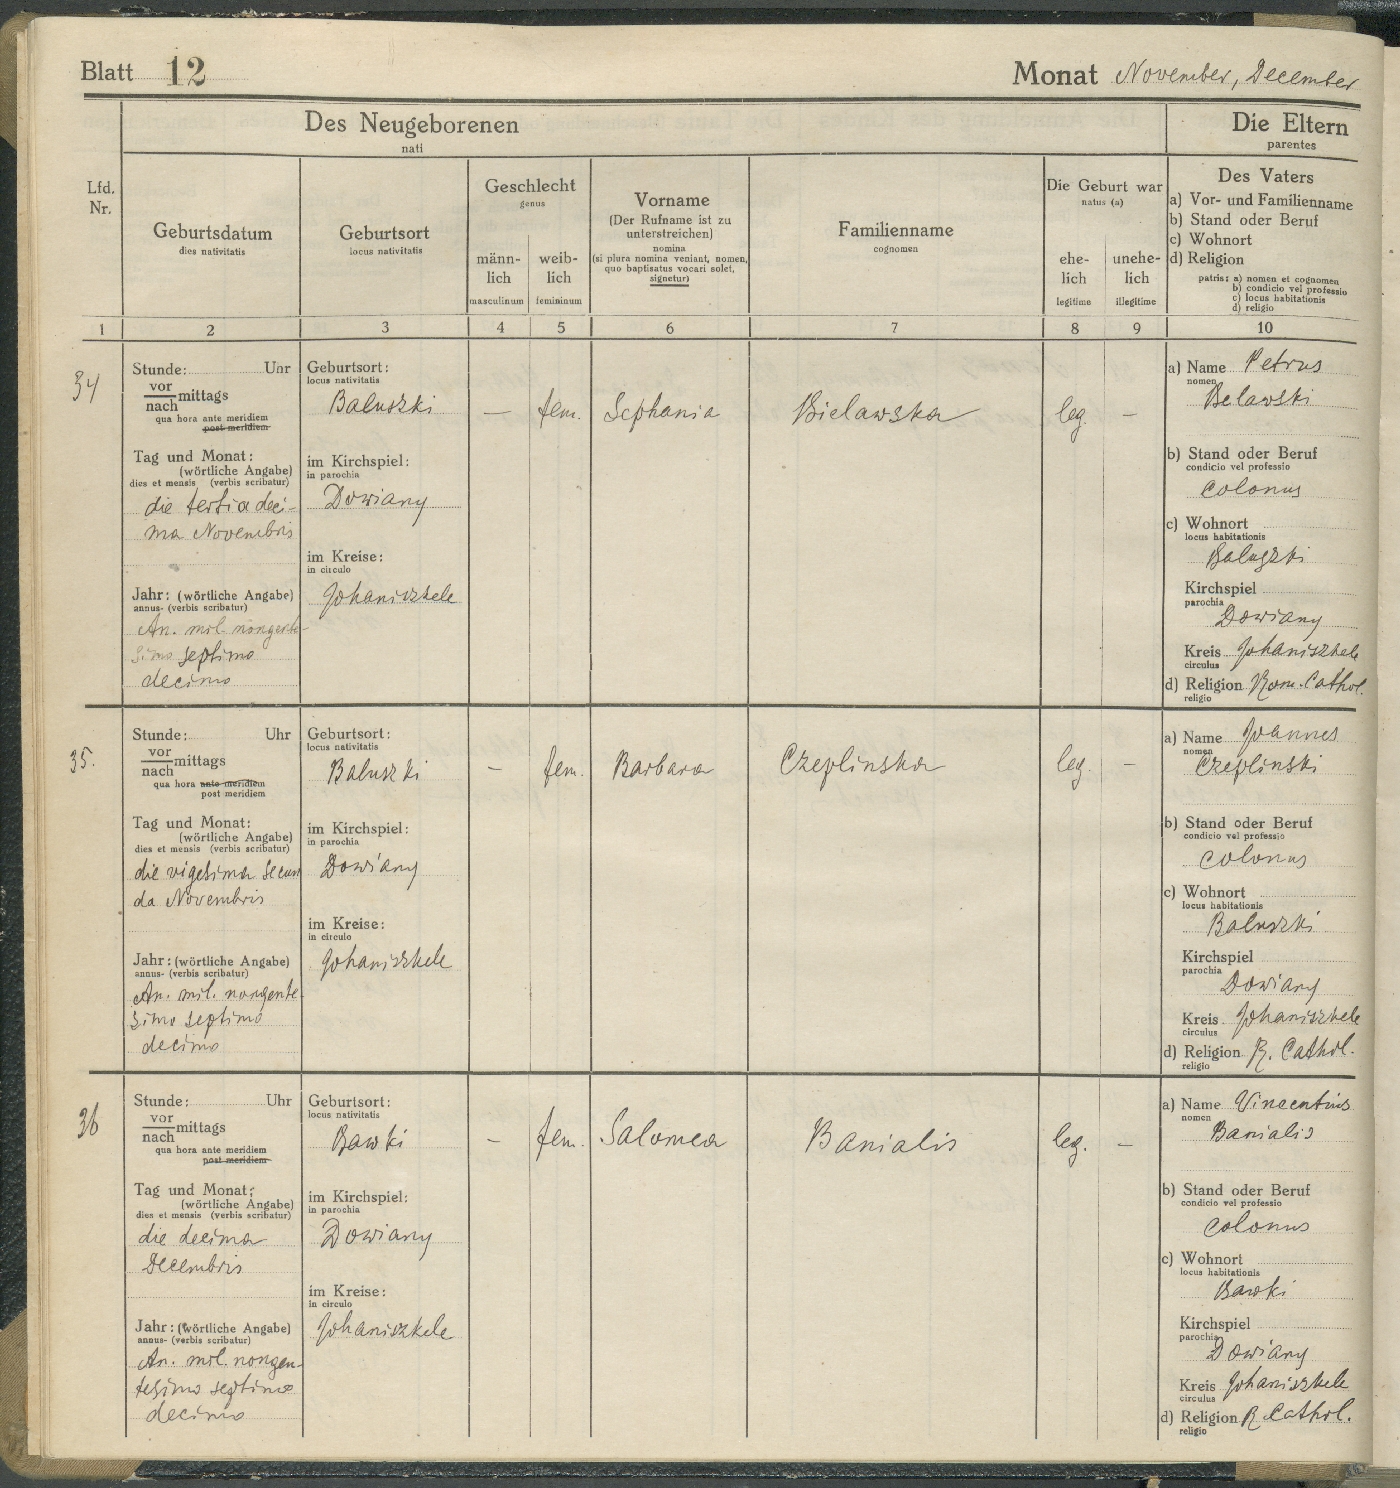 Blatt 12
Monat November, December
Des Neugeborenen
nati
Die Eltern
parentes
Lfd.
Nr.
Geburtsdatum
dies nativitatis
Geburtsort
locus nativitatis
Geschlecht
genus
männ-
lich
masculinum
weib-
lich
femininum
Vorname
(Der Rufname ist zu
unterstreichen)
nomina
(si plura nomina veniant, nomen,
quo baptisatus vocari solet,
signetur)
Familienname
cognomen
Die Geburt war
natus (a)
ehe-
lich
legitime
unehe-
lich
illegitime
Des Vaters
a) Vor- und Familienname
b) Stand oder Beruf
c) Wohnort
d) Religion
patris: a) nomen et cognomen
b) condicio vel professio
c) locus habitationis
d) religio
1 2 3 4 5 6 7 8 9 10
34
Stunde: Uhr
vor
nach mittags
qua hora ante meridiem
post meridiem
Tag und Monat:
(wörtliche Angabe)
dies et mensis (verbis scribatur)
die tertia deci-
ma Novembris
Jahr: (wörtliche Angabe)
annus- (verbis scribatur)
An. mil. nongente-
simo septimo
decimo
Geburtsort:
locus nativitatis
Baluszki
im Kirchspiel:
in parochia
Dowiany
im Kreise:
in circulo
Johaniszkele
—
fem.
Sephania
Bielawska
leg.
—
a) Name Petrus
nomen
Belawski
b) Stand oder Beruf
condicio vel professio
colonus
c) Wohnort
locus habitationis
Baluszki
Kirchspiel
parochia
Dowiany
Kreis Johaniszkele
circulus
d) Religion Rom. Cathol.
religio
35.
Stunde: Uhr
vor
nach mittags
qua hora ante meridiem
post meridiem
Tag und Monat:
(wörtliche Angabe)
dies et mensis (verbis scribatur)
die vigesima secun
da Novembris
Jahr: (wörtliche Angabe)
annus- (verbis scribatur)
An. mil. nongente
simo septimo
decimo
Geburtsort:
locus nativitatis
Baluszki
im Kirchspiel:
in parochia
Dowiany
im Kreise:
in circulo
Johaniszkele
—
fem.
Barbara
Czeplinska
leg.
—
a) Name Joannes
nomen
Czeplinski
b) Stand oder Beruf
condicio vel professio
colonus
c) Wohnort
locus habitationis
Baluszki
Kirchspiel
parochia
Dowiany
Kreis Johaniszkele
circulus
d) Religion R. Cathol.
religio
36
Stunde: Uhr
vor
nach mittags
qua hora ante meridiem
post meridiem
Tag und Monat:
(wörtliche Angabe)
dies et mensis (verbis scribatur)
die decima
Decembris
Jahr: (wörtliche Angabe)
annus- (verbis scribatur)
An. mil. nongen-
tesimo septimo
decimo
Geburtsort:
locus nativitatis
Bawki
im Kirchspiel:
in parochia
Dowiany
im Kreise:
in circulo
Johaniszkele
—
fem.
Salomea
Banialis
leg.
—
a) Name Vincentius
nomen
Banialis
b) Stand oder Beruf
condicio vel professio
colonus
c) Wohnort
locus habitationis
Bawki
Kirchspiel
parochia
Dowiany
Kreis Johaniszkele
circulus
d) Religion R. Cathol.
religio